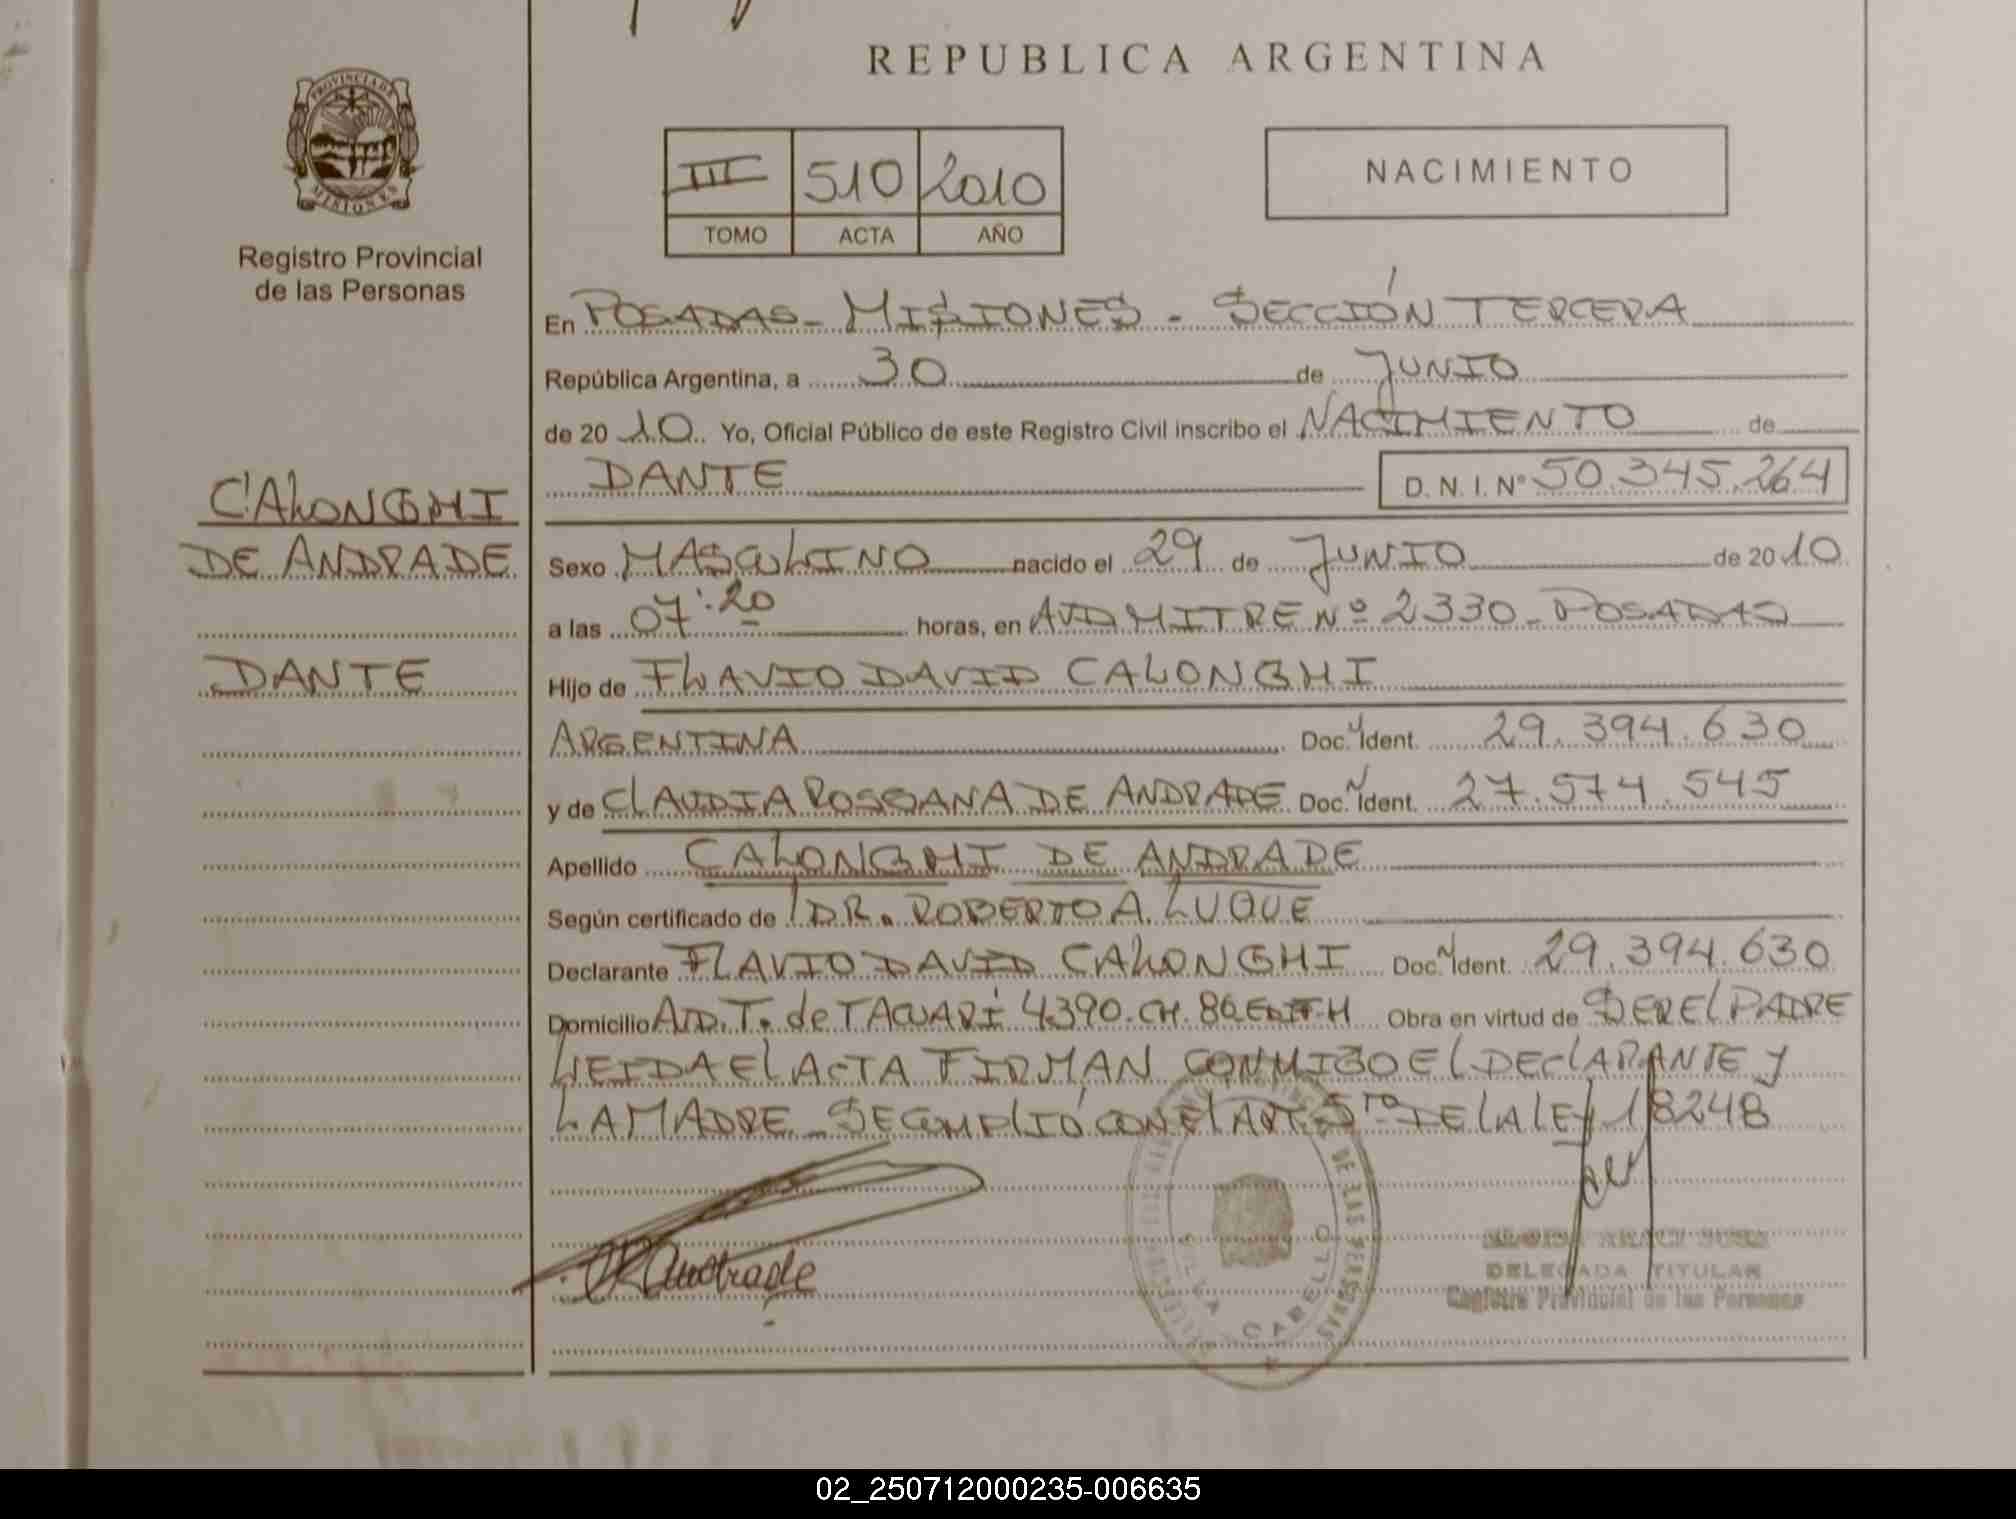 REPUBLICA ARGENTINA
PROVINCIA DE
MISIONES
Registro Provincial
de las Personas
III 510 2010
TOMO ACTA AÑO
NACIMIENTO
En POSADAS - MISIONES - SECCIÓN TERCERA
República Argentina, a 30 de JUNIO
de 2010. Yo, Oficial Público de este Registro Civil inscribo el NACIMIENTO de
DANTE D.N.I.Nº 50.345.264
CALONGHI
DE ANDRADE
DANTE
Sexo MASCULINO nacido el 29 de JUNIO de 2010
a las 07:20 horas, en AVD MITRE Nº 2330 - POSADAS
Hijo de FLAVIO DAVID CALONGHI
ARGENTINA Doc. Ident. 29.394.630
y de CLAUDIA ROSSANA DE ANDRADE Doc. Ident. 27.574.545
Apellido CALONGHI DE ANDRADE
Según certificado de DR. ROBERTO A. LUQUE
Declarante FLAVIO DAVID CALONGHI Doc. Ident. 29.394.630
Domicilio AVD. T. de TACUARÍ 4390. CH. 86 EDIF H Obra en virtud de SER EL PADRE
LEIDA EL ACTA FIRMAN CONMIGO EL DECLARANTE Y
LA MADRE - SE CUMPLIÓ CON EL ART. 5TO DE LA LEY 18248
DE LAS PERSONAS
CABELLO
DELEGADA TITULAR
Registro Provincial de las Personas
02_250712000235-006635